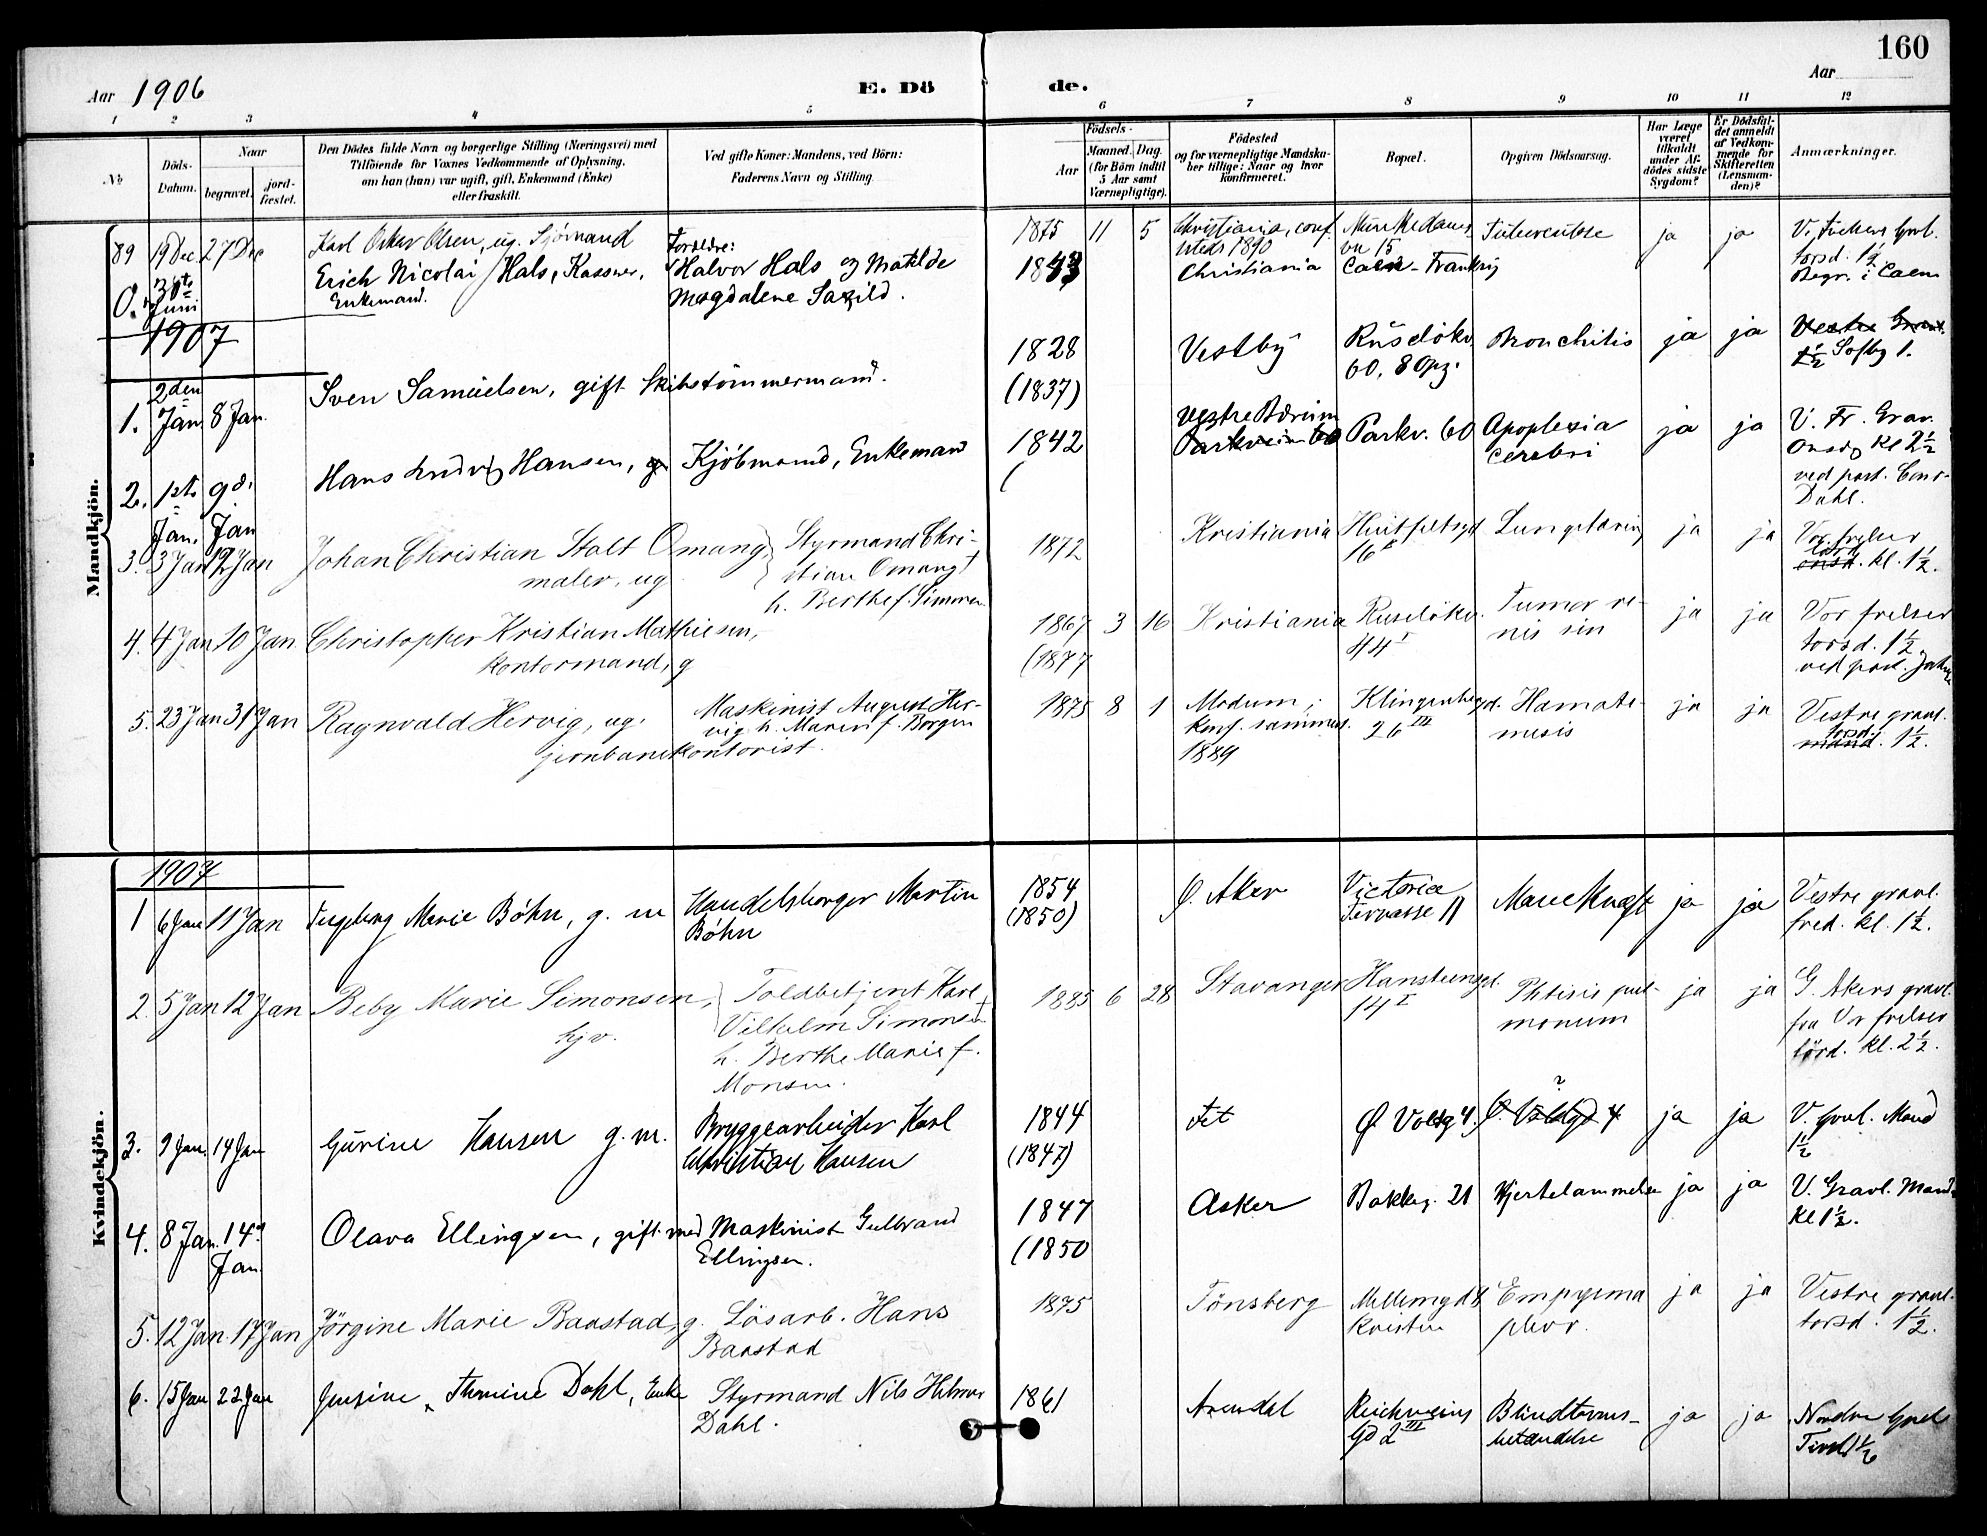 160
Aar 1906
E. Dö
de.
Aar
1 2 3 4 5 6 7 8 9 10 11 12
No
Döds-Datum.
Naar
begravet.
jord-fæstet.
Den Dödes fulde Navn og borgerlige Stilling (Næringsvei) med
Tilföiende for Voxnes Vedkommende af Oplysning,
om han (hun) var ugift, gift, Enkemand (Enke)
eller fraskilt.
Ved gifte Koner: Mandens, ved Börn:
Faderens Navn og Stilling.
Födsels-
Aar
Maaned. Dag.
(for Börn indtil
5 Aar samt
Værnepligtige).
Födested
og for værnepligtige Mandska-
ber tillige: Naar og hvor
konfirmeret.
Bopæl.
Opgiven Dödsaarsag.
Har Læge
været
tilkaldt
under Af-
dödes sidste
Sygdom?
Er Dödsfal-
det anmeldt
af Vedkom-
mende for
Skifteretten
(Lensman-
den)?
Anmærkninger.
Mandkjön.
89 19 Dec. 27 Dec Karl Oskar Olsen, ug. Sjömand 1875 11 5 Christiania, conf. Tuberculose ja ja
steds 1890
15
torsd. 1½
0. 30te Juni Erich Nicolai Hals, Kasserer, Enkemand. Forældre: Halvor Hals og Matilde Magdalene Saxild. 1843 Christiania Caen - Frankrig Begr. i Caen
1907
1. 2den Jan. 8 Jan. Sven Samuelsen, gift Skibstömmermand. 1828 (1837) Vestby Ruselökv. 60, 8 Opg. Bronchitis ja ja Vestre Gravl. 1½
2. 1ste Jan. 9d. Jan Hans Ludvig Hansen, Kjöbmand, Enkemand 1842 ( Vestre Bærum Parkveien 60 Parkv. 60 Apoplexia cerebri ja ja V. Fr. Grav. Onsdg Kl 2½ ved past. Dahl.
3. 3 Jan 12 Jan Johan Christian Stolt Omang, maler, ug Styrmand Christian Omang † h. Berthe f. Simonsen 1872 Kristiania Huitfeltsgd 16 II Lungetæring ja ja Vor frelser lörd. onsd. kl. 1½.
4. 4 Jan 10 Jan. Christopher Kristian Mathiesen, kontormand, g 1867 (1877 3 16 Kristiania Ruselökv. 44 I Tumor renis sin ja ja Vor frelser torsd. 1½ ved past.
5. 23 Jan 31 Jan Ragnvald Hervig, ug. jernbanekontorist. Maskinist August Hervig h. Maren f. Borgen 1875 8 1 Modum; konf. sammest. 1889 Klingenbergd. 26 III Hamatemesis ja ja Vestre gravl. torsd. mand. 1½.
Kvindekjön.
1907
1 6 Jan 11 Jan Ingeborg Marie Böhn, g. m Handelsborger Martin Böhn 1854 (1850) Ø. Aker Victoria Terrasse 11 Mavekræft ja ja Vestre gravl. fred. kl. 1½.
2. 5 Jan 12 Jan Beby Marie Simonsen, hjv. Toldbetjent Karl Vilhelm Simonsen † h. Berthe Marie f. Monsen. 1885 6 28 Stavanger Hansteensgd. 14 I Phtisis pulmonum ja ja G. Akers gravl. fra Vor frelser lörd. kl. 2½.
3. 9 Jan. 14 Jan Gurine Hansen g. m. Bryggearbeider Karl Christian Hansen 1844 (1847) Fet Ø Voldg 4. Ø. Voldgd 4 ? ja ja V. Gravl. Mand 1½
4. 8 Jan. 14d Jan. Olava Ellingsen, gift med Maskinist Gulbrand Ellingsen. 1847 (1850 Asker Bakkeg. 21 Hjertelammelse ja ja V. Gravl. Mand. Kl 1½.
5. 12 Jan. 17 Jan Jörgine Marie Baastad, g. Lösarb. Hans Baastad 1875 Tönsberg Mellemgd 8 Empyema pleur. ja ja Vestre gravl. torsd. 1½.
6. 15 Jan 22 Jan Jensine Thomine Dahl, Enke Styrmand Nils Hilmar Dahl. 1861 Arendal Reichweins Gd 2 III Blindtarmsbetændelse ja ja Nordre Gravl. Tirsd 1½